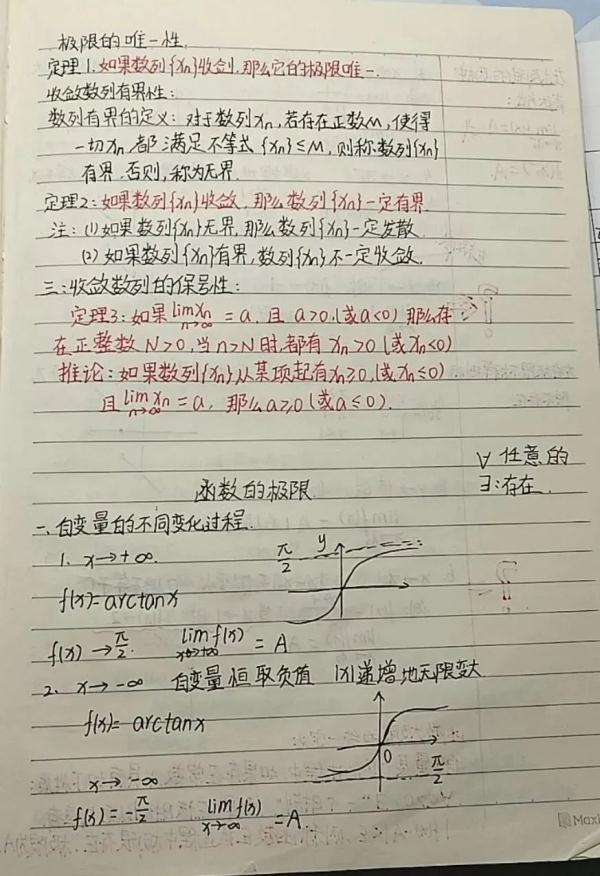 极限的唯一性.
定理1.如果数列{xn}收敛,那么它的极限唯一.
收敛数列有界性:
数列有界的定义:对于数列xn,若存在正数M,使得
一切xn都满足不等式{xn}≤M,则称数列{xn}
有界.否则,称为无界.
定理2:如果数列{xn}收敛,那么数列{xn}一定有界.
注:(1)如果数列{xn}无界,那么数列{xn}一定发散.
(2)如果数列{xn}有界,数列{xn}不一定收敛.
三:收敛数列的保号性:
定理3:如果lim xn n→∞ =a,且a>0,(或a<0)那么存
在正整数N>0,当n>N时,都有xn>0(或xn<0)
推论:如果数列{xn}从某项起有xn≥0,(或xn≤0)
且lim xn n→∞ =a,那么a≥0(或a≤0).
∀任意的
∃:存在.
函数的极限.
一.自变量的不同变化过程.
1. x→+∞.
π/2 y
f(x)=arctanx
f(x)→π/2. lim f(x) x→+∞ =A
2. x→-∞ 自变量恒取负值 |x|递增地无限变大
f(x)=arctanx
0
π/2
x→-∞
f(x)=-π/2 lim f(x) x→∞ =A.
Maxi